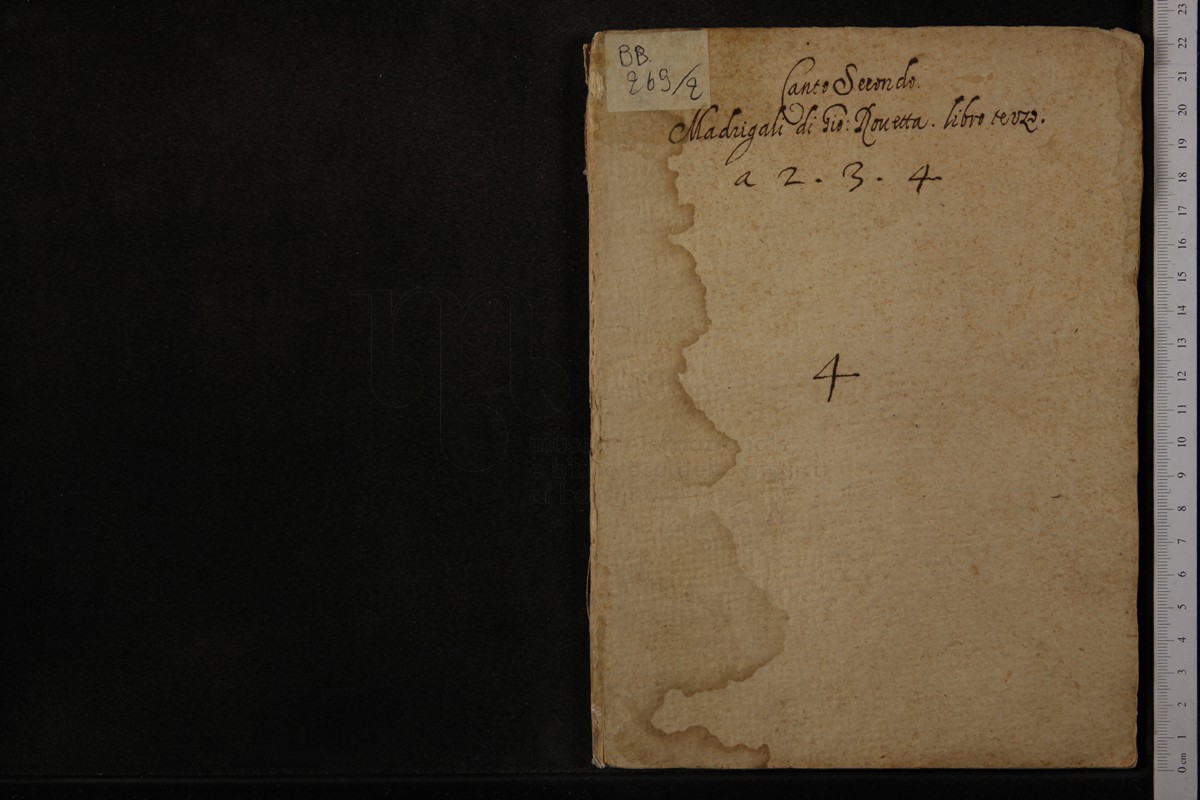 BB.
269/2
Canto Secondo.
Madrigali di Gio: Rouetta. libro terzo.
a 2. 3. 4
4
23
22
21
20
19
18
17
16
15
14
13
12
11
10
9
8
7
6
5
4
3
2
1
0 cm